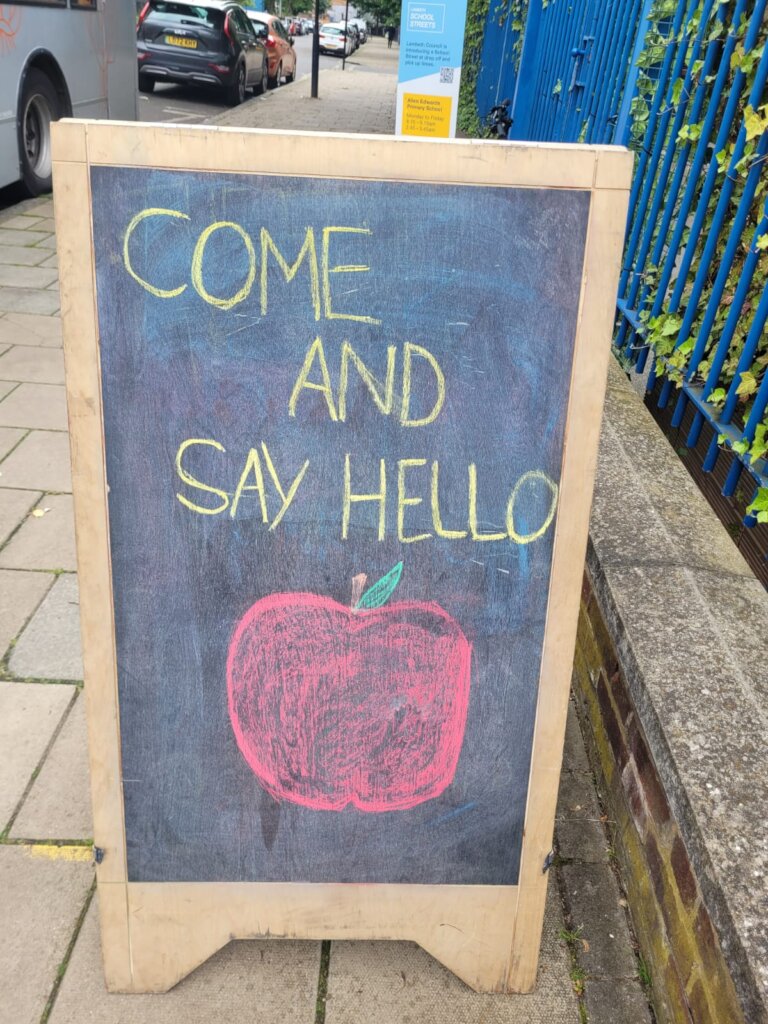 LAMBETH
SCHOOL
STREETS
Lambeth Council is
introducing a School
Street at drop off and
pick up times.
Allen Edwards
Primary School
Monday to Friday
COME
AND
SAY HELLO